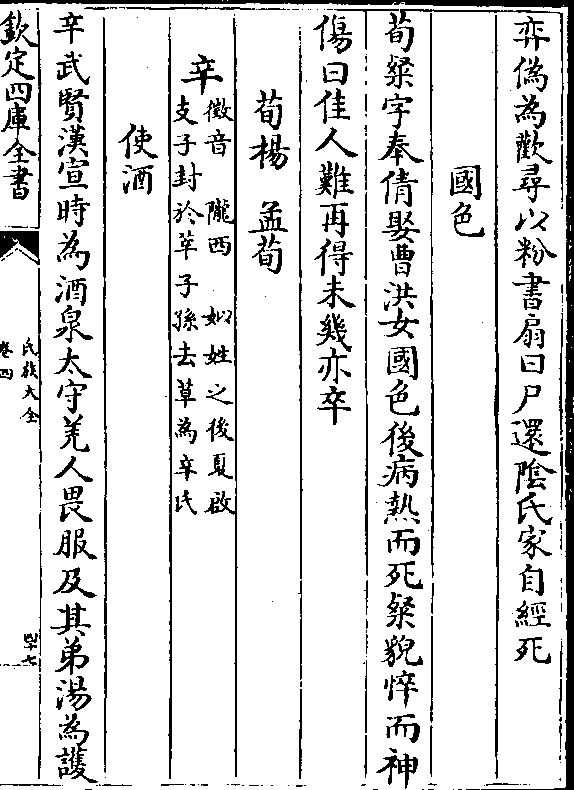 弈偽為歡尋以粉書扇曰尸還陰氏家自經死
國色
荀粲字奉倩娶曹洪女國色後病熱而死粲貌悴而神
傷曰佳人難再得未幾亦卒
荀楊 孟荀
辛
徴音 隴西 姒姓之後夏啟
支子封於莘子孫去草為辛氏
使酒
辛武賢漢宣時為酒泉太守羌人畏服及其弟湯為護
欽定四庫全書
氏族大全
卷四
四十七